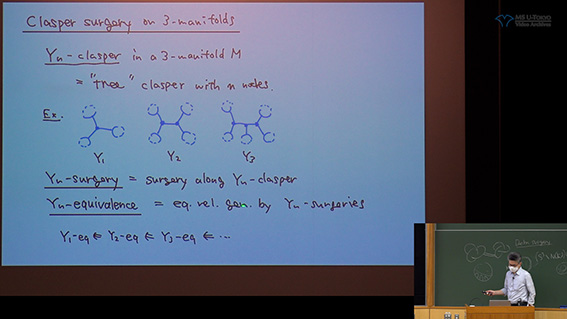 Clasper surgery on 3-manifolds
Yn-clasper in a 3-manifold M
= "tree" clasper with n nodes.
Ex.
Y1 Y2 Y3
Yn-surgery = surgery along Yn-clasper
Yn-equivalence = eq. rel. gen. by Yn-surgeries
Y1-eq ⇐ Y2-eq ⇐ Y3-eq ⇐ ...
Video Archives
surgery